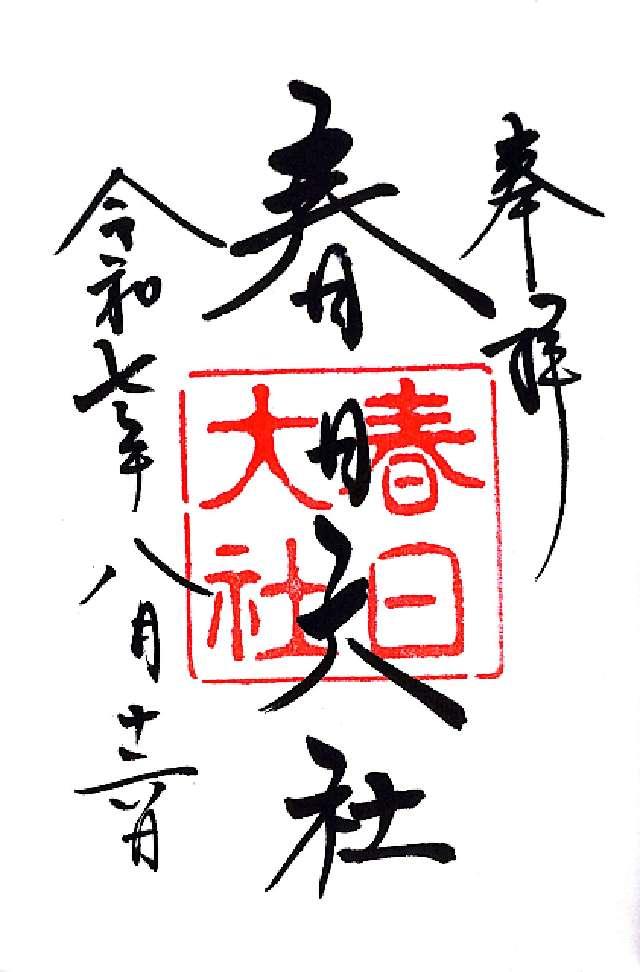 奉拝
春日大社
春日
大社
令和七年八月十六日